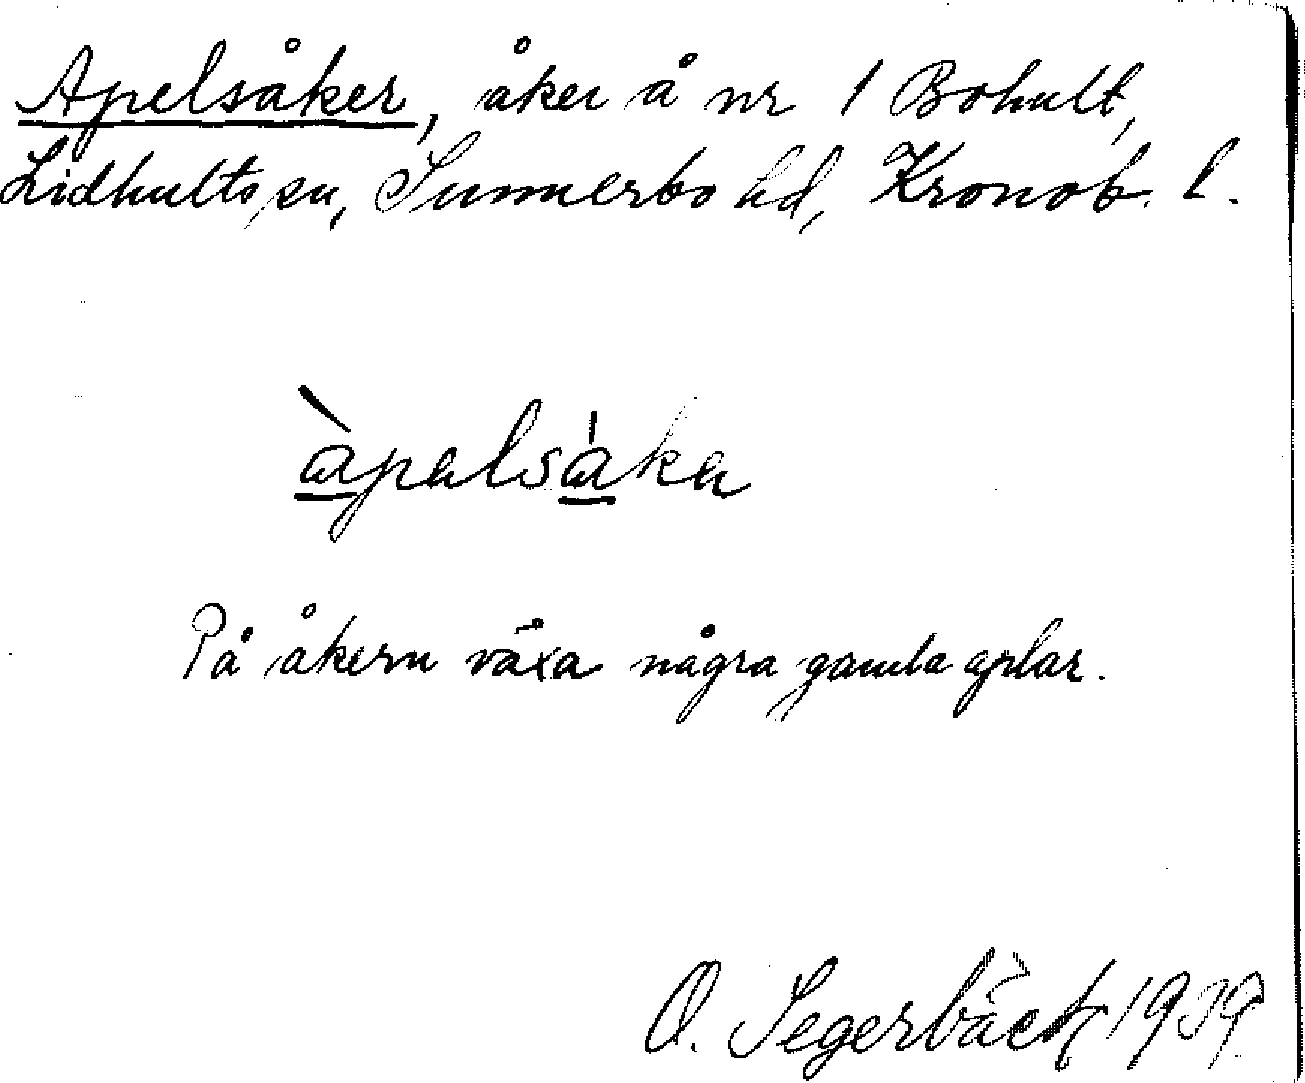 Apelsåker, åker å nr 1 Bohult,
Lidhults sn, Sunnerbo hd, Kronob. l.
àpalsáka
På åkern växa några gamla aplar.
O. Segerbäck 1939